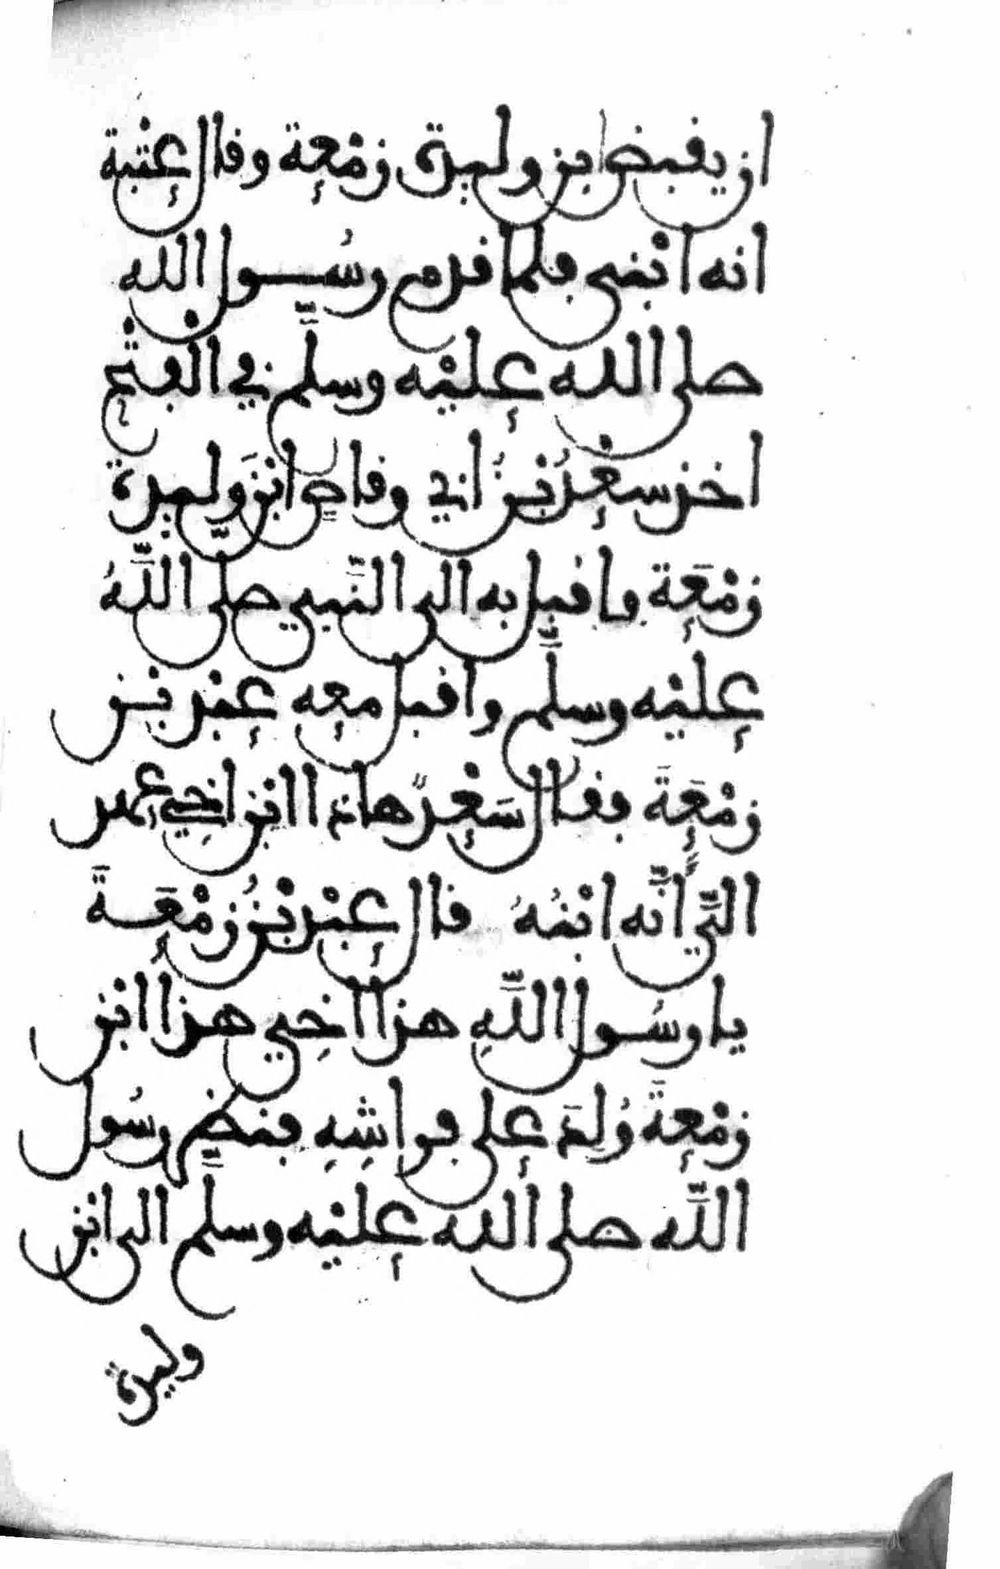 ان يقبض ابن وليدة زمعة وقال عتبة
انه ابني فلما قدم رسول الله
صلى الله عليه وسلم في الفتح
اخذ سعد بن ابي وقاص ابن وليدة
زمعة فاقبل به الى النبي صلى الله
عليه وسلم واقبل معه عبد بن
زمعة فقال سعد هاذا ابن اخي عهد
الي انه ابنه قال عبد بن زمعة
يا رسول الله هذا اخي هذا ابن
زمعة ولد على فراشه فنظر رسول
الله صلى الله عليه وسلم الى ابن
وليدة